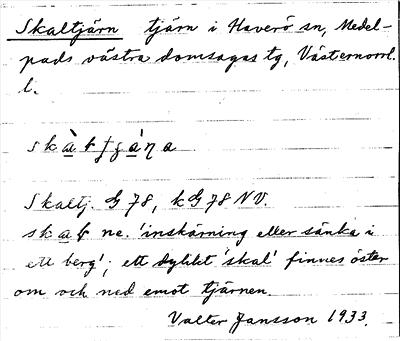 Skaltjärn tjärn i Haverö sn, Medel-
pads västra domsagas tg, Västernorrl.
l.
Skaltj. G 78, k G 78 NV.
ne. 'inskärning eller sänka i
ett berg'; ett dylikt 'skal' finnes öster
om och ned emot tjärnen.
Valter Jansson 1933.